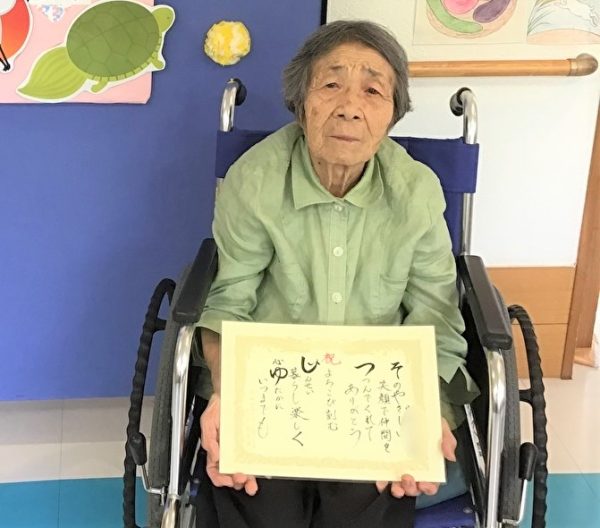 そのやさしい
笑顔で仲間を
つつんでくれて
ありがとう
祝
よろこび刻む
じんせい
暮らし楽しく
心ゆたかに
いつまでも